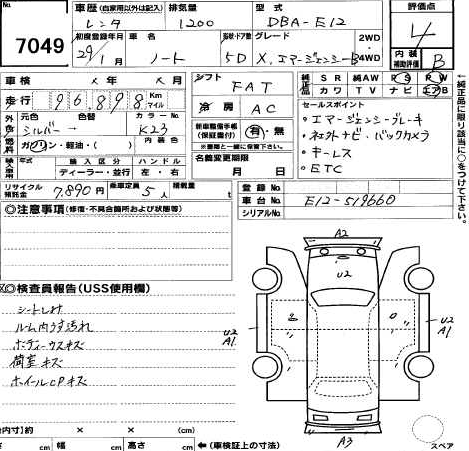 No.
7049
車歴 (自家用以外は記入)
レンタ
排気量
1200
型式
DBA-E12
評価点
4
初度登録年月
29/1 月
車名
ノート
形状・ドア数
5D
グレード
X, エマージェンシーB
2WD
4WD
内装
補助評価
B
車検 × 年 × 月
シフト
FAT
純正品
SR 純AW PS PW
カワ TV ナビ エアB
走行 96,898 Km マイル
冷房
AC
セールスポイント
・エマージェンシーブレーキ
・ネットナビ・バックカメラ
・キーレス
・ETC
外色
元色
シルバー→
色替
カラーNo.
K23
燃料
ガソリン・軽油・( )
新車整備手帳
(保証書付)
有・無
※書類と一緒に保管して下さい。
輸入車
年式
輸入区分
ディーラー・並行
ハンドル
左・右
名義変更期限
月 日
リサイクル
預託金
7,890円
乗車定員
5人
積載量
t
登録No.
車台No.
E12-519660
シリアルNo.
←純正品に限り誤りに○を付けて下さい。
◎注意事項 (修復・不具合箇所および状態等)
◎検査員報告(USS使用欄)
シートしみ
ルーム内うす汚れ
ボディーウスキズ
荷室キズ
ホイールCPキズ
A2
U2
U2
A1
U2
A1
A3
スペア
内寸)約 × × (cm)
幅 (cm)
高さ (cm)
←(車検証上の寸法)